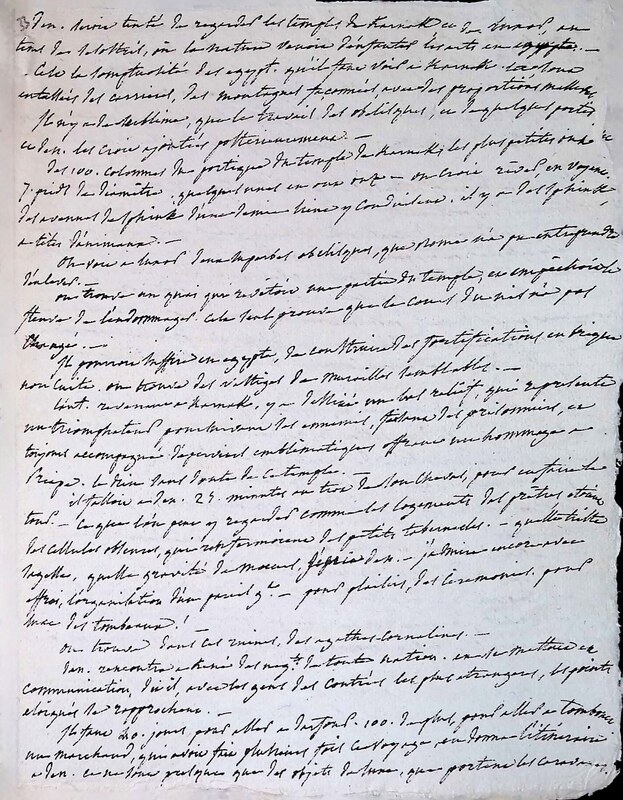 Den. seroit tenté de regarder les temples de Karnak et de Luxor, du
tems de Sésostris, où la nature venoit d'enfanter les arts en egypte. —
C'est la somptuosité des egypt. qu'il faut voir à Karnak où sont
entassés des carrières, des montagnes façonnées avec des proportions
Il n'y a de sublime, que le travail des obélisques, et de quelques portes
et den. les croit ajoutées postérieurement. —
Des 100. colonnes du portique du temple de Karnak, les plus petites ont
7. pieds de diamètre. quelques unes en ont onze — on croit rêver, en voyant
des avenues de sphinx d'une demie lieue y conduisent. il y a des sphinx
à têtes d'animaux. —
On voit à Luxor deux superbes obélisques, que Rome n'a pu entreprendre
d'enlever. —
on trouve un quai qui revêtoit une partie du temple, en empêchoit le
fleuve de l'endommager. Cela seul prouve que le cours du nil n'a pas
changé. —
Il pourroit suffire en egypte, de construire des fortifications en brique
non cuite. on trouve des vestiges de murailles semblables. —
Cont. revenant à Karnak, y a dessiné un bas relief, qui représente
un triomphateur poursuivant les ennemis, faisant des prisonniers, et
toujours accompagné de permis emblématiques offrant un hommage à
Priape. le dieu sans doute de ce temple. —
il fallut à den. 25. minutes au trot de son cheval, pour en faire le
tour. — Ce que l'on peut y regarder comme les logements des prêtres étoient
des cellules obscures, qui renfermoient de petits tabernacles. — quelle triste
sagesse, quelle gravité de moeurs, s'écrie den. — j'admire encore avec
effroi, l'organisation d'un pareil gt. — pour plaisirs, des cérémonies, pour
luxe des tombeaux! —
On trouve dans ces ruines, des agathes cornelines. —
Den. rencontra à Kené des negts. de toute nation. en se mettant en
communication, dit-il, avec les gens des contrées les plus étrangères, les points
éloignés se rapprochent. —
Il faut 40. jours, pour aller à Darfour. 100. de plus, pour aller à Tombout
un marchand, qui avoit fait plusieurs fois ce voyage, en donna l'itinéraire
à den. ce ne sont presque que des objets de luxe, que portent les caravanes